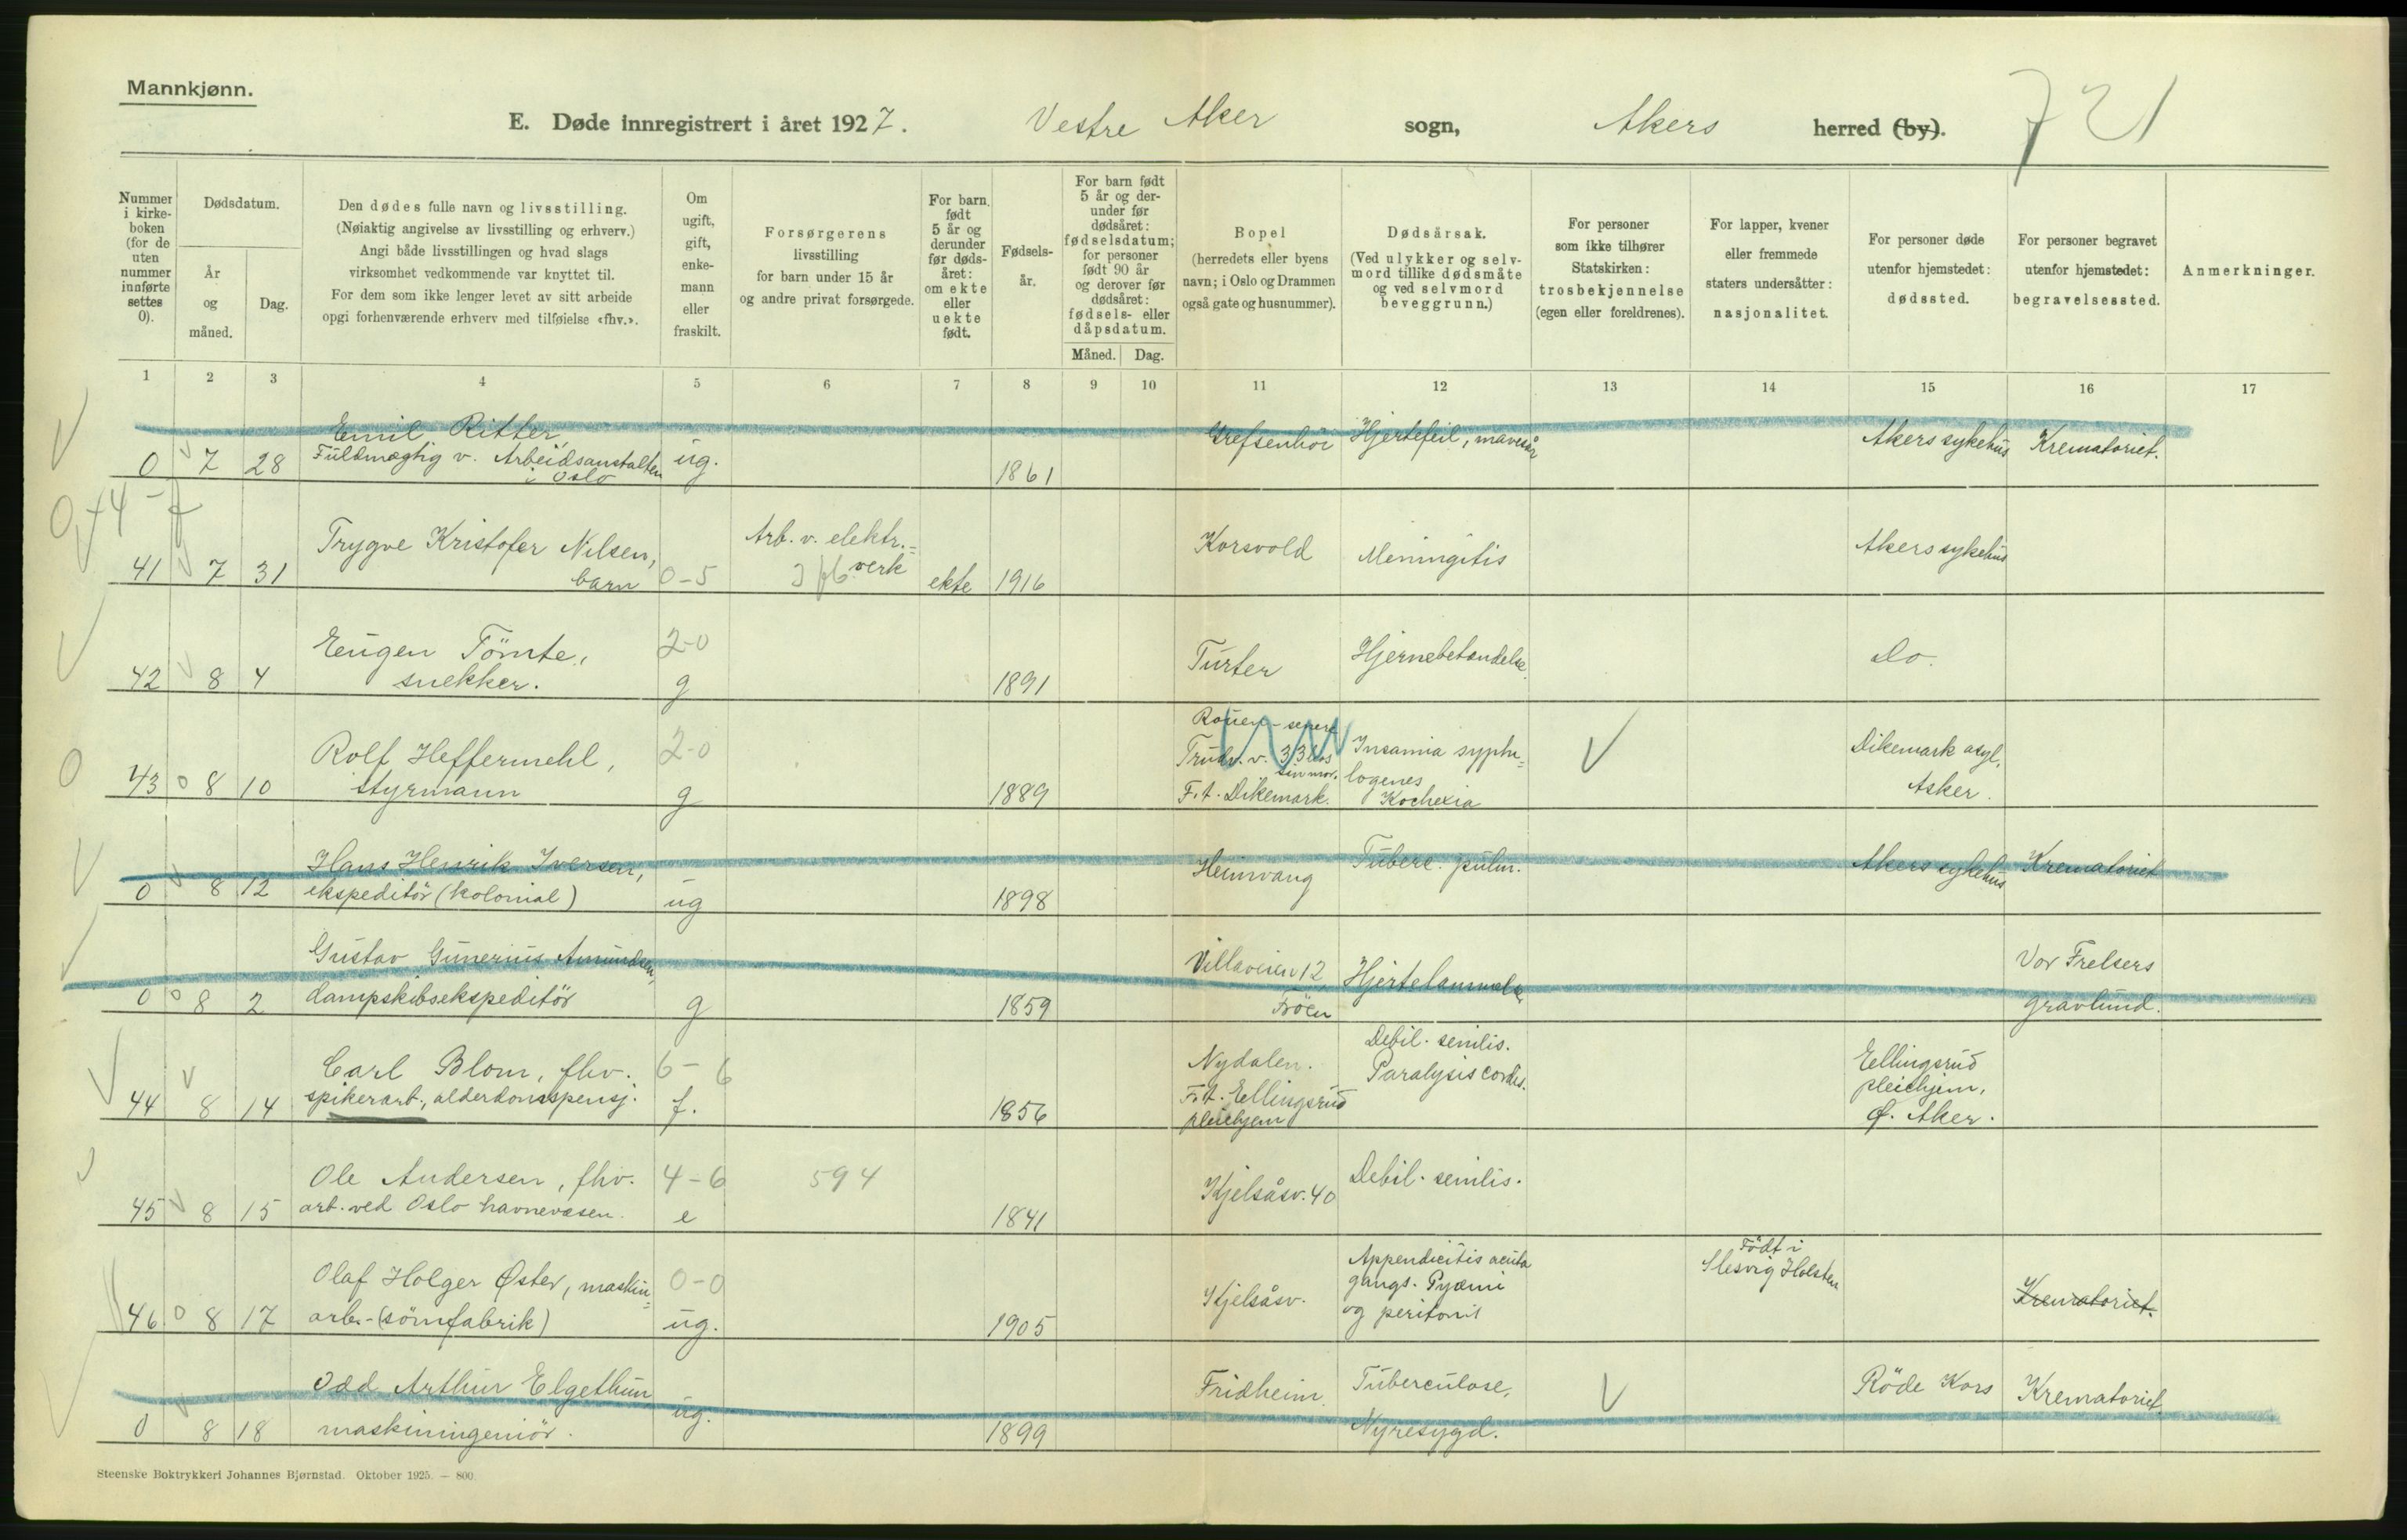 Mannkjønn.
E. Døde innregistrert i året 1927. Vestre Aker sogn, Akers herred (by). 721
Nummer i kirke-boken (for de uten nummer innførte settes 0).
Dødsdatum.
År og måned.
Dag.
Den dødes fulle navn og livsstilling.
(Nøiaktig angivelse av livsstilling og erhverv.)
Angi både livsstillingen og hvad slags
virksomhet vedkommende var knyttet til.
For dem som ikke lenger levet av sitt arbeide
opgi forhenværende erhverv med tilføielse «fhv.».
Om ugift, gift, enke-mann eller fraskilt.
Forsørgerens
livsstilling
for barn under 15 år
og andre privat forsørgede.
For barn født 5 år og derunder før døds-året: om ekte eller uekte født.
Fødsels-år.
For barn født 5 år og der-under før dødsåret: fødselsdatum; for personer født 90 år og derover før dødsåret: fødsels- eller dåpsdatum.
Måned. Dag.
Bopel
(herredets eller byens
navn; i Oslo og Drammen
også gate og husnummer).
Dødsårsak.
(Ved ulykker og selv-
mord tillike dødsmåte
og ved selvmord
beveggrunn.)
For personer
som ikke tilhører
Statskirken:
trosbekjennelse
(egen eller foreldrenes).
For lapper, kvener
eller fremmede
staters undersåtter:
nasjonalitet.
For personer døde
utenfor hjemstedet:
dødssted.
For personer begravet
utenfor hjemstedet:
begravelsessted.
Anmerkninger.
1 2 3 4 5 6 7 8 9 10 11 12 13 14 15 16 17
Emil Ritter,
0 7 28 Fuldmægtig v. Arbeidsanstalten i Oslo ug. 1861 Grefsenhöi Hjertefeil, mavesår Akers sykehus Krematoriet.
0,+4-7
Trygve Kristofer Nilsen, Arb. v. elektr.-
41 7 31 barn 0-5 verk ekte 1916 Korsvold Meningitis Akers sykehus
Eugen Tömte, 2-0
42 8 4 snekker. g 1891 Turter Hjernebetendelse Do.
Rolf Heffermehl, 2-0
43 0 8 10 styrmann g 1889
Trudv. v. 33 hos
sin mor.
F. t. Dikemark.
Insania syphi-
logenes
Kochexia
Dikemark asyl,
Asker.
Hans Henrik Iversen,
0 8 12 ekspeditör (kolonial) ug 1898 Heimvang Tuberc. pulm. Akers sykehus Krematoriet
Gustav Gunerius Amundsen,
0 0 8 2 dampskibsekspeditör g 1859 Villaveien 12, Fröen Hjertelammelse Vor Frelsers
gravlund.
Carl Blom, fhv. 6-6
44 8 14 spikerarb., alderdomspensj. f. 1856
Nydalen.
F. t. Ellingsrud
pleiehjem
Debil. senilis.
Paralysis cordis.
Eellingsrud
pleiehjem,
Ø. Aker.
Ole Andersen, fhv. 4-6 594
45 8 15 arb. ved Oslo havnevæsen. e 1841 Kjelsåsv. 40 Debil. senilis.
Olaf Holger Øster, maskin- 0-0
46 0 8 17 arb.- (sömfabrik) ug. 1905 Kjelsåsv.
Appendicitis acuta
gangr. Pyæmi
og peritonit
Födt i
Slesvig Holsten
Krematoriet.
Odd Arthur Elgethun
0 8 18 maskiningeniör. ug. 1899 Fridheim. Tuberculose,
Nyresygd. Röde Kors Krematoriet
Steenske Boktrykkeri Johannes Bjørnstad. Oktober 1925. — 800.